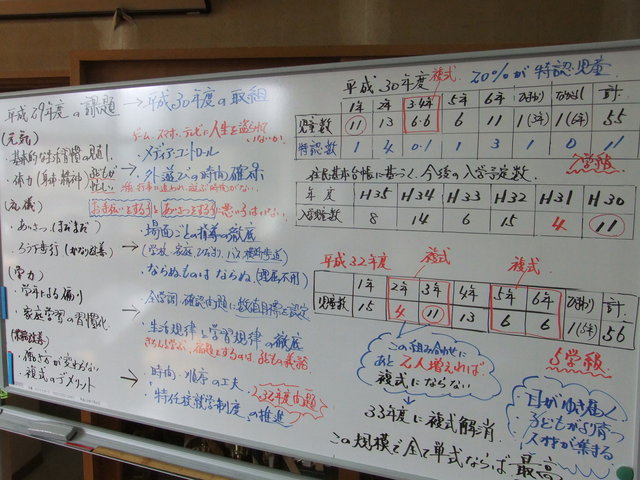 平成29年度の課題 → 平成30年度の取組
(元気)
ゲーム、スマホ、テレビに人生を盗られていないか
・基本的な生活習慣の見直し
・メディアコントロール
・体力(身体・精神)
→ ・外遊びの時間確保
(礼儀)
おはようする子とあいさつをする子に悪い子はいない。
・あいさつ(まだまだ)
・場面ごとの指導の徹底
(学校、家庭、ひだまり、バス、横断歩道)
・ならぬものはならぬ(理屈不用)
(学力)
・学年による偏り
→ ・全学調・確認問題に数値目標を設定
・家庭学習の習慣化
・生活規律と学習規律の徹底
・働き方が変わらない
→ ・時間・順序の工夫
・複式のデメリット
・特任校就学制度の推進
32年度問題
平成30年度 複式 20%が特認児童
1年 2年 3・4年 5年 6年 計
児童数 11 13 6・6 6 11 1(3年) 1(6年) 55
特認数 1 4 0・1 1 3 1 0 11
入学級
住民基本台帳に基づく、今後の入学予定数
年度 H35 H34 H33 H32 H31 H30
入学予定数 8 14 6 15 4 11
平成32年度 複式 複式
1年 2年 3年 4年 5年 6年 ひまわり 計
児童数 15 4 11 13 6 6 1(5年) 56
5学級
この組み合わせに
あと2人増えれば
複式にならない
33年度に複式解消
この規模で全て単式ならば最高
目がゆき届く
子どもがより育つ
人材が集まる